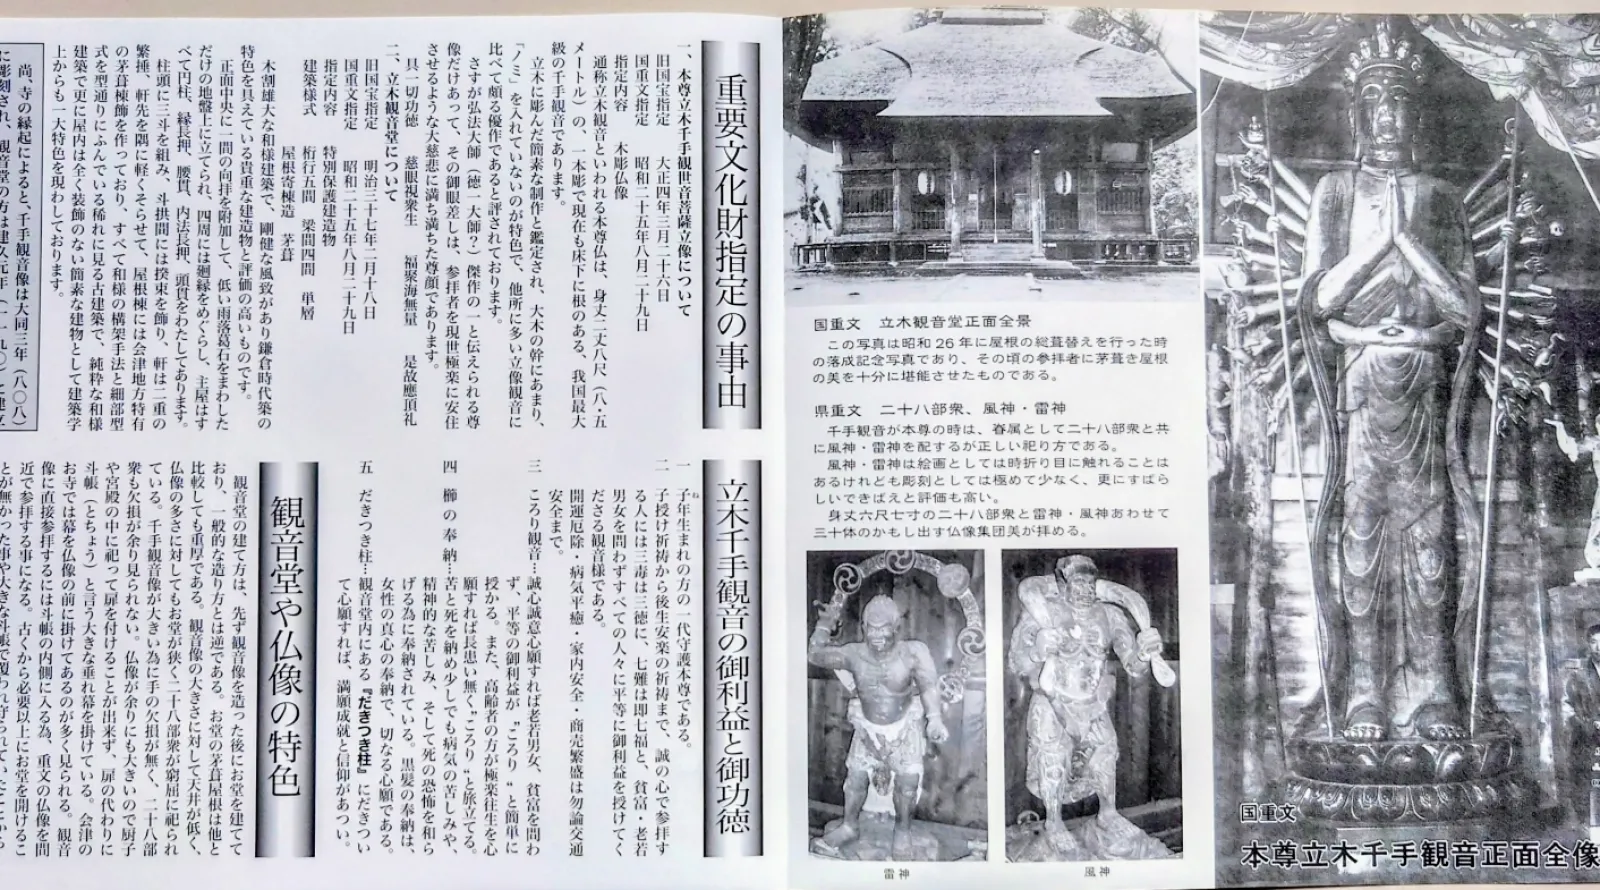 重要文化財指定の事由
一、本尊立木千手観世音菩薩立像について
旧国宝指定　大正四年三月二十六日
国重文指定　昭和二十五年八月二十九日
指定内容　木彫仏像
通称立木観音といわれる本尊仏は、身丈二丈八尺（八・五
メートル）の、一本彫で現在も床下に根のある、我国最大
級の千手観音であります。
立木に彫んだ簡素な制作と鑑定され、大木の幹にあまり、
「ノミ」を入れていないのが特色で、他所に多い立像観音に
比べて頗る優作であると評されております。
さすが弘法大師（徳一大師？）傑作の一と伝えられる尊
像だけあって、その御眼差しは、参拝者を現世極楽に安住
させるような大慈悲に満ち満ちた尊顔であります。
具一切功徳　慈眼視衆生　福聚海無量　是故應頂礼
二、立木観音堂について
旧国宝指定　明治三十七年二月十八日
国重文指定　昭和二十五年八月二十九日
指定内容　特別保護建造物
建築様式　桁行五間　梁間四間　単層
屋根寄棟造　茅葺
木割雄大な和様建築で、剛健な風致があり鎌倉時代築の
特色を具えている貴重な建造物と評価の高いものです。
正面中央に一間の向拝を附加して、低い雨落葛石をまわした
だけの地盤上に立てられ、四周には廻縁をめぐらし、主屋はす
べて円柱、縁長押、腰貫、内法長押、頭貫をわたしてあります。
柱頭に三斗を組み、斗拱間には揆束を飾り、軒は二重の
繁捶、軒先を隅に軽くそらせて、屋根棟には会津地方特有
の茅葺棟飾を作っており、すべて和様の構架手法と細部型
式を型通りにふんでいる稀れに見る古建築で、純粋な和様
建築で更に屋内は全く装飾のない簡素な建物として建築学
上からも一大特色を現わしております。
尚、寺の縁起によると、千手観音像は大同三年（八〇八）
に彫刻され、観音堂の方は建久元年（一一九〇）に建立
立木千手観音の御利益と御功徳
一　子年生まれの方の一代守護本尊である。
ね
二　子授け祈祷から後生安楽の祈祷まで、誠の心で参拝す
る人には三毒は三徳に、七難は即七福と、貧富・老若
男女を問わずすべての人々に平等に御利益を授けてく
ださる観音様である。
開運厄除・病気平癒・家内安全・商売繁盛は勿論交通
安全まで。
三　ころり観音…誠心誠意心願すれば老若男女、貧富を問わ
ず、平等の御利益が〝ころり〟と簡単に
授かる。また、高齢者の方が極楽往生を心
願すれば長患い無く〝ころり〟と旅立てる。
四　櫛の奉納…苦と死を納め少しでも病気の苦しみや、
精神的な苦しみ、そして死の恐怖を和ら
げる為に奉納されている。黒髪の奉納は、
女性の真心の奉納で、切なる心願である。
五　だきつき柱…観音堂内にある『だきつき柱』にだきつい
て心願すれば、満願成就と信仰があつい。
観音堂や仏像の特色
観音堂の建て方は、先ず観音像を造った後にお堂を建てて
おり、一般的な造り方とは逆である。お堂の茅葺屋根は他と
比較しても重厚である。観音像の大きさに対して天井が低く、
仏像の多さに対してもお堂が狭く二十八部衆が窮屈に祀られ
ている。千手観音像が大きい為に手の欠損が無く、二十八部
衆も欠損が余り見られない。仏像が余りにも大きいので厨子
や宮殿の中に祀って扉を付けることが出来ず、扉の代わりに
斗帳（とちょう）と言う大きな垂れ幕を掛けている。会津の
お寺では幕を仏像の前に掛けてあるのが多く見られる。観音
像に直接参拝するには斗帳の内側に入る為、重文の仏像を間
近で参拝する事になる。古くから必要以上にお堂を開けるこ
とが無かった事や大きな斗帳で覆われ守られていたことから
国重文　立木観音堂正面全景
この写真は昭和26年に屋根の総葺替えを行った時
の落成記念写真であり、その頃の参拝者に茅葺き屋根
の美を十分に堪能させたものである。
県重文　二十八部衆、風神・雷神
千手観音が本尊の時は、眷属として二十八部衆と共
に風神・雷神を配するが正しい祀り方である。
風神・雷神は絵画としては時折り目に触れることは
あるけれども彫刻としては極めて少なく、更にすばら
しいできばえと評価も高い。
身丈六尺七寸の二十八部衆と雷神・風神あわせて
三十体のかもし出す仏像集団美が拝める。
雷神
風神
国重文
本尊立木千手観音正面全像